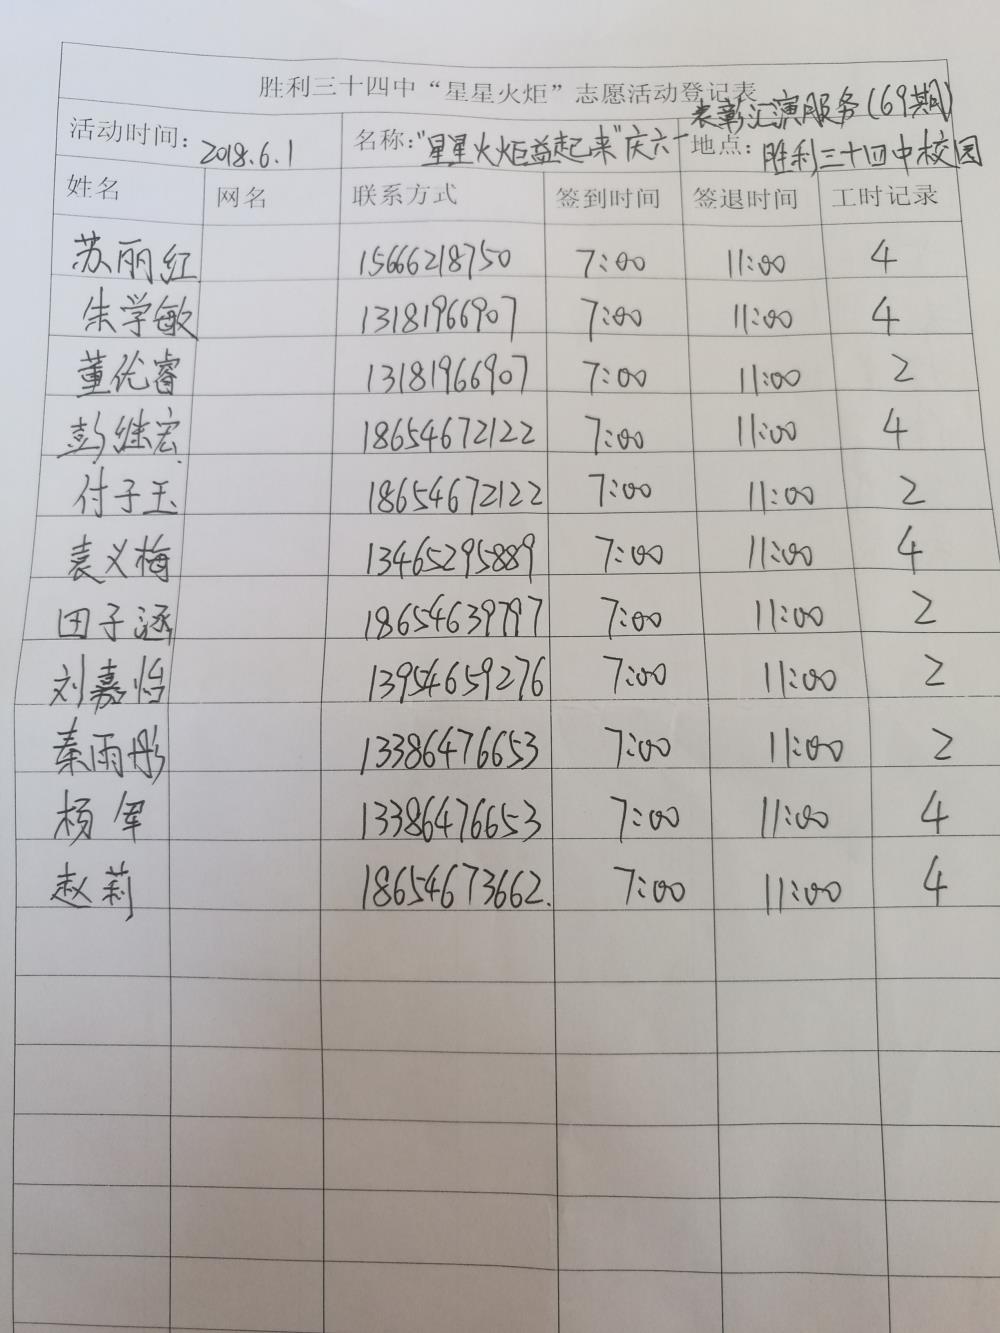 胜利三十四中“星星火炬”志愿活动登记表
表彰汇演服务(69期)
活动时间: 2018.6.1 名称:“星星火炬益起来”庆六一 地点: 胜利三十四中校园
姓名 网名 联系方式 签到时间 签退时间 工时记录
苏丽红 15666218750 7:00 11:00 4
朱学敏 13181966907 7:00 11:00 4
董优睿 13181966907 7:00 11:00 2
彭继宏 18654672122 7:00 11:00 4
付子玉 18654672122 7:00 11:00 2
袁义梅 13465295889 7:00 11:00 4
田子涵 18654639797 7:00 11:00 2
刘嘉怡 13954659276 7:00 11:00 2
秦雨彤 13386476653 7:00 11:00 2
杨军 13386476653 7:00 11:00 4
赵莉 18654673662. 7:00 11:00 4